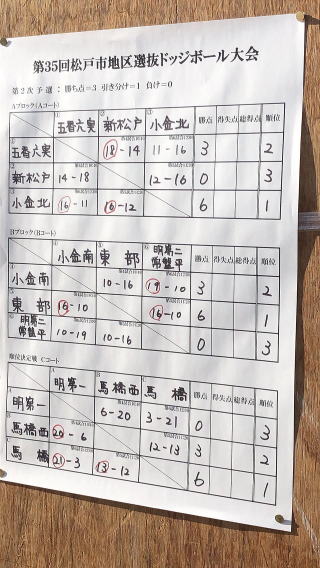 第35回松戸市地区選抜ドッジボール大会
第2次予選：勝ち点=3 引き分け=1 負け=0
Aブロック(Aコート)
五香六実 新松戸 小金北 勝点 得失点 総得点 順位
五香六実 18-14 11-16 3 2
新松戸 14-18 12-16 0 3
小金北 16-11 16-12 6 1
Bブロック(Bコート)
小金南 東部 明第二 常盤平 勝点 得失点 総得点 順位
小金南 10-16 19-10 3 2
東部 16-10 16-10 6 1
明第二 常盤平 10-19 10-16 0 3
順位決定戦 Cコート
A B C
明第一 馬橋西 馬橋 勝点 得失点 総得点 順位
明第一 6-20 3-21 0 3
馬橋西 20-6 12-13 3 2
馬橋 21-3 13-12 6 1